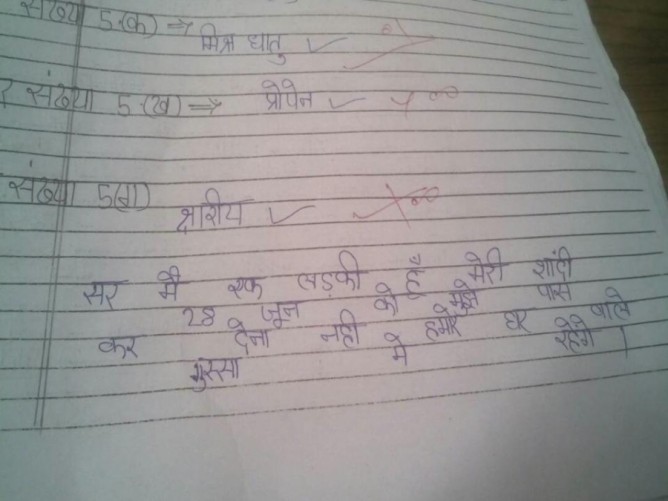 संख्या 5.(क) ⇒ मिश्र धातु
संख्या 5.(ख) ⇒ प्रोपेन
संख्या 5(ग) क्षारीय
सर मैं एक लड़की हूँ मेरी शादी
28 जून को मुझे पास
कर देना नही हमारे घर वाले
गुस्सा में रहेंगे ।